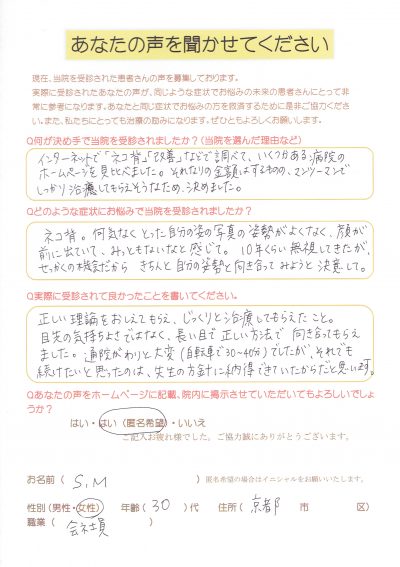 あなたの声を聞かせてください
現在、当院を受診された患者さんの声を募集しております。
実際に受診されたあなたの声が、同じような症状でお悩みの未来の患者さんにとって非
常に参考になります。あなたと同じ症状でお悩みの方を救済するために是非ご協力くださ
い。また、私たちにとっても治療の励みになります。ぜひともよろしくお願いします。
Q何が決め手で当院を受診されましたか?(当院を選んだ理由など)
インターネットで「ネコ背」「改善」などで調べて、いくつかある病院の
ホームページを見比べました。それなりの金額はするものの、マンツーマンで
しっかり治療してもらえそうなため、決めました。
Qどのような症状にお悩みで当院を受診されましたか?
ネコ背。何気なくとった自分の姿の写真の姿勢がよくなく、顔が
前に出ていて、みっともないなと感じて。10年くらい無視してきたが、
せっかくの機会だから きちんと自分の姿勢と向き合ってみようと決意して。
Q実際に受診されて良かったことを書いてください。
正しい理論をおしえてもらえ、じっくりと治療してもらえたこと。
目先の気持ちよさではなく、長い目で正しい方法で向き合ってもらえ
ました。通院がわりと大変(自転車で30~40分)でしたが、それでも
続けたいと思ったのは、先生の方針に納得できていたからだと思います。
Qあなたの声をホームページに記載、院内に掲示させていただいてもよろしいでしょ
うか?
はい・はい(匿名希望)・いいえ
ご記入お疲れ様でした。ご協力誠にありがとうございます。
お名前( S.M )匿名希望の場合はイニシャルをお願いいたします。
性別(男性・女性) 年齢( 30 )代 住所( 京都 市 区)
職業( 会社員 )